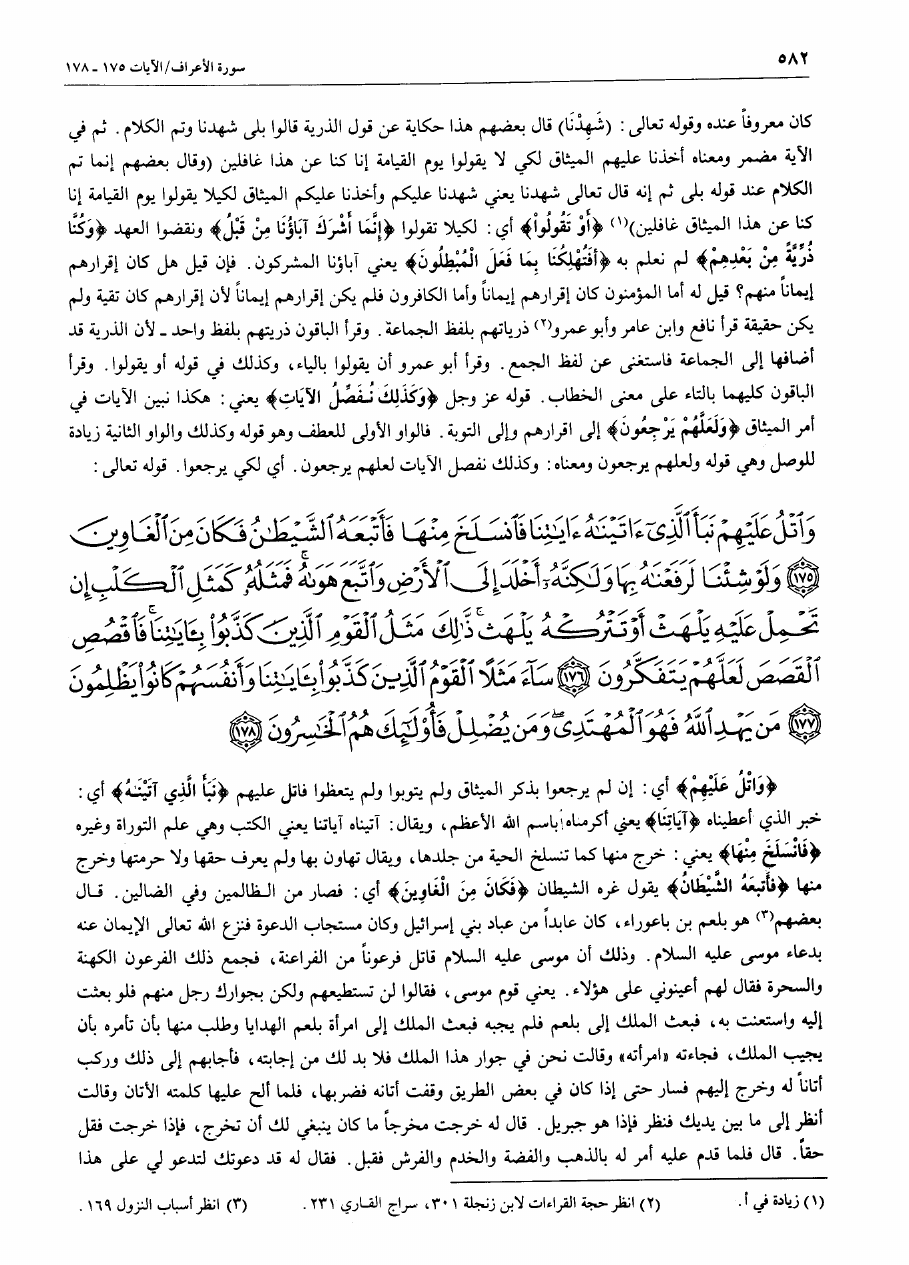 ٥٨٢
سورة الأعراف/الآيات ١٧٥ - ١٧٨
كان معروفاً عنده وقوله تعالى: (شَهِدْنَا) قال بعضهم هذا حكاية عن قول الذرية قالوا بلى شهدنا وتم الكلام. ثم في
الآية مضمر ومعناه أخذنا عليهم الميثاق لكي لا يقولوا يوم القيامة إنا كنا عن هذا غافلين (وقال بعضهم إنما تم
الكلام عند قوله بلى ثم إنه قال تعالى شهدنا يعني شهدنا عليكم وأخذنا عليكم الميثاق لكيلا يقولوا يوم القيامة إنا
كنا عن هذا الميثاق غافلين)(١) ﴿أَوْ تَقُولُوا﴾ أي: لكيلا تقولوا ﴿إِنَّمَا أَشْرَكَ آبَاؤُنَا مِنْ قَبْلُ﴾ ونقضوا العهد ﴿وَكُنَّا
ذُرِّيَّةً مِنْ بَعْدِهِمْ﴾ لم نعلم به ﴿أَفَتُهْلِكُنَا بِمَا فَعَلَ الْمُبْطِلُونَ﴾ يعني آباؤنا المشركون. فإن قيل هل كان إقرارهم
إيماناً منهم؟ قيل له أما المؤمنون كان إقرارهم إيماناً وأما الكافرون فلم يكن إقرارهم إيماناً لأن إقرارهم كان تقية ولم
يكن حقيقة قرأ نافع وابن عامر وأبو عمرو(٢) ذرياتهم بلفظ الجماعة. وقرأ الباقون ذريتهم بلفظ واحد - لأن الذرية قد
أضافها إلى الجماعة فاستغنى عن لفظ الجمع. وقرأ أبو عمرو أن يقولوا بالياء، وكذلك في قوله أو يقولوا. وقرأ
الباقون كليهما بالتاء على معنى الخطاب. قوله عز وجل ﴿وَكَذَلِكَ نُفَصِّلُ الآيَاتِ﴾ يعني: هكذا نبين الآيات في
أمر الميثاق ﴿وَلَعَلَّهُمْ يَرْجِعُونَ﴾ إلى اقرارهم وإلى التوبة. فالواو الأولى للعطف وهو قوله وكذلك والواو الثانية زيادة
للوصل وهي قوله ولعلهم يرجعون ومعناه: وكذلك نفصل الآيات لعلهم يرجعون. أي لكي يرجعوا. قوله تعالى:
وَٱتْلُ عَلَيْهِمْ نَبَأَ ٱلَّذِىٓ ءَاتَيْنَٰهُ ءَايَٰتِنَا فَٱنسَلَخَ مِنْهَا فَأَتْبَعَهُ ٱلشَّيْطَٰنُ فَكَانَ مِنَ ٱلْغَاوِينَ
١٧٥ وَلَوْ شِئْنَا لَرَفَعْنَٰهُ بِهَا وَلَٰكِنَّهُۥٓ أَخْلَدَ إِلَى ٱلْأَرْضِ وَٱتَّبَعَ هَوَىٰهُ ۚ فَمَثَلُهُۥ كَمَثَلِ ٱلْكَلْبِ إِن
تَحْمِلْ عَلَيْهِ يَلْهَثْ أَوْ تَتْرُكْهُ يَلْهَث ۚ ذَّٰلِكَ مَثَلُ ٱلْقَوْمِ ٱلَّذِينَ كَذَّبُوا۟ بِـَٔايَٰتِنَا ۚ فَٱقْصُصِ
ٱلْقَصَصَ لَعَلَّهُمْ يَتَفَكَّرُونَ ١٧٦ سَآءَ مَثَلًا ٱلْقَوْمُ ٱلَّذِينَ كَذَّبُوا۟ بِـَٔايَٰتِنَا وَأَنفُسَهُمْ كَانُوا۟ يَظْلِمُونَ
١٧٧ مَن يَهْدِ ٱللَّهُ فَهُوَ ٱلْمُهْتَدِى ۖ وَمَن يُضْلِلْ فَأُو۟لَٰٓئِكَ هُمُ ٱلْخَٰسِرُونَ ١٧٨
﴿وَاتْلُ عَلَيْهِمْ﴾ أي: إن لم يرجعوا بذكر الميثاق ولم يتوبوا ولم يتعظوا فاتل عليهم ﴿نَبَأَ الَّذِي آتَيْنَـٰهُ﴾ أي:
خبر الذي أعطيناه ﴿آيَاتِنَا﴾ يعني أكرمناه باسم الله الأعظم، ويقال: آتيناه آياتنا يعني الكتب وهي علم التوراة وغيره
﴿فَانْسَلَخَ مِنْهَا﴾ يعني: خرج منها كما تنسلخ الحية من جلدها، ويقال تهاون بها ولم يعرف حقها ولا حرمتها وخرج
منها ﴿فَأَتْبَعَهُ الشَّيْطَانُ﴾ يقول غره الشيطان ﴿فَكَانَ مِنَ الْغَاوِينَ﴾ أي: فصار من الظالمين وفي الضالين. قال
بعضهم(٣) هو بلعم بن باعوراء، كان عابداً من عباد بني إسرائيل وكان مستجاب الدعوة فنزع الله تعالى الإيمان عنه
بدعاء موسى عليه السلام. وذلك أن موسى عليه السلام قاتل فرعوناً من الفراعنة، فجمع ذلك الفرعون الكهنة
والسحرة فقال لهم أعينوني على هؤلاء. يعني قوم موسى، فقالوا لن تستطيعهم ولكن بجوارك رجل منهم فلو بعثت
إليه واستعنت به، فبعث الملك إلى بلعم فلم يجبه فبعث الملك إلى امرأة بلعم الهدايا وطلب منها بأن تأمره بأن
يجيب الملك، فجاءته «امرأته» وقالت نحن في جوار هذا الملك فلا بد لك من إجابته، فأجابهم إلى ذلك وركب
أتاناً له وخرج إليهم فسار حتى إذا كان في بعض الطريق وقفت أتانه فضربها، فلما ألح عليها كلمته الأتان وقالت
أنظر إلى ما بين يديك فنظر فإذا هو جبريل. قال له خرجت مخرجاً ما كان ينبغي لك أن تخرج، فإذا خرجت فقل
حقاً. قال فلما قدم عليه أمر له بالذهب والفضة والخدم والفرش فقبل. فقال له قد دعوتك لتدعو لي على هذا
(١) زيادة في أ.
(٢) انظر حجة القراءات لابن زنجلة ٣٠١، سراج القاري ٢٣١.
(٣) انظر أسباب النزول ١٦٩.